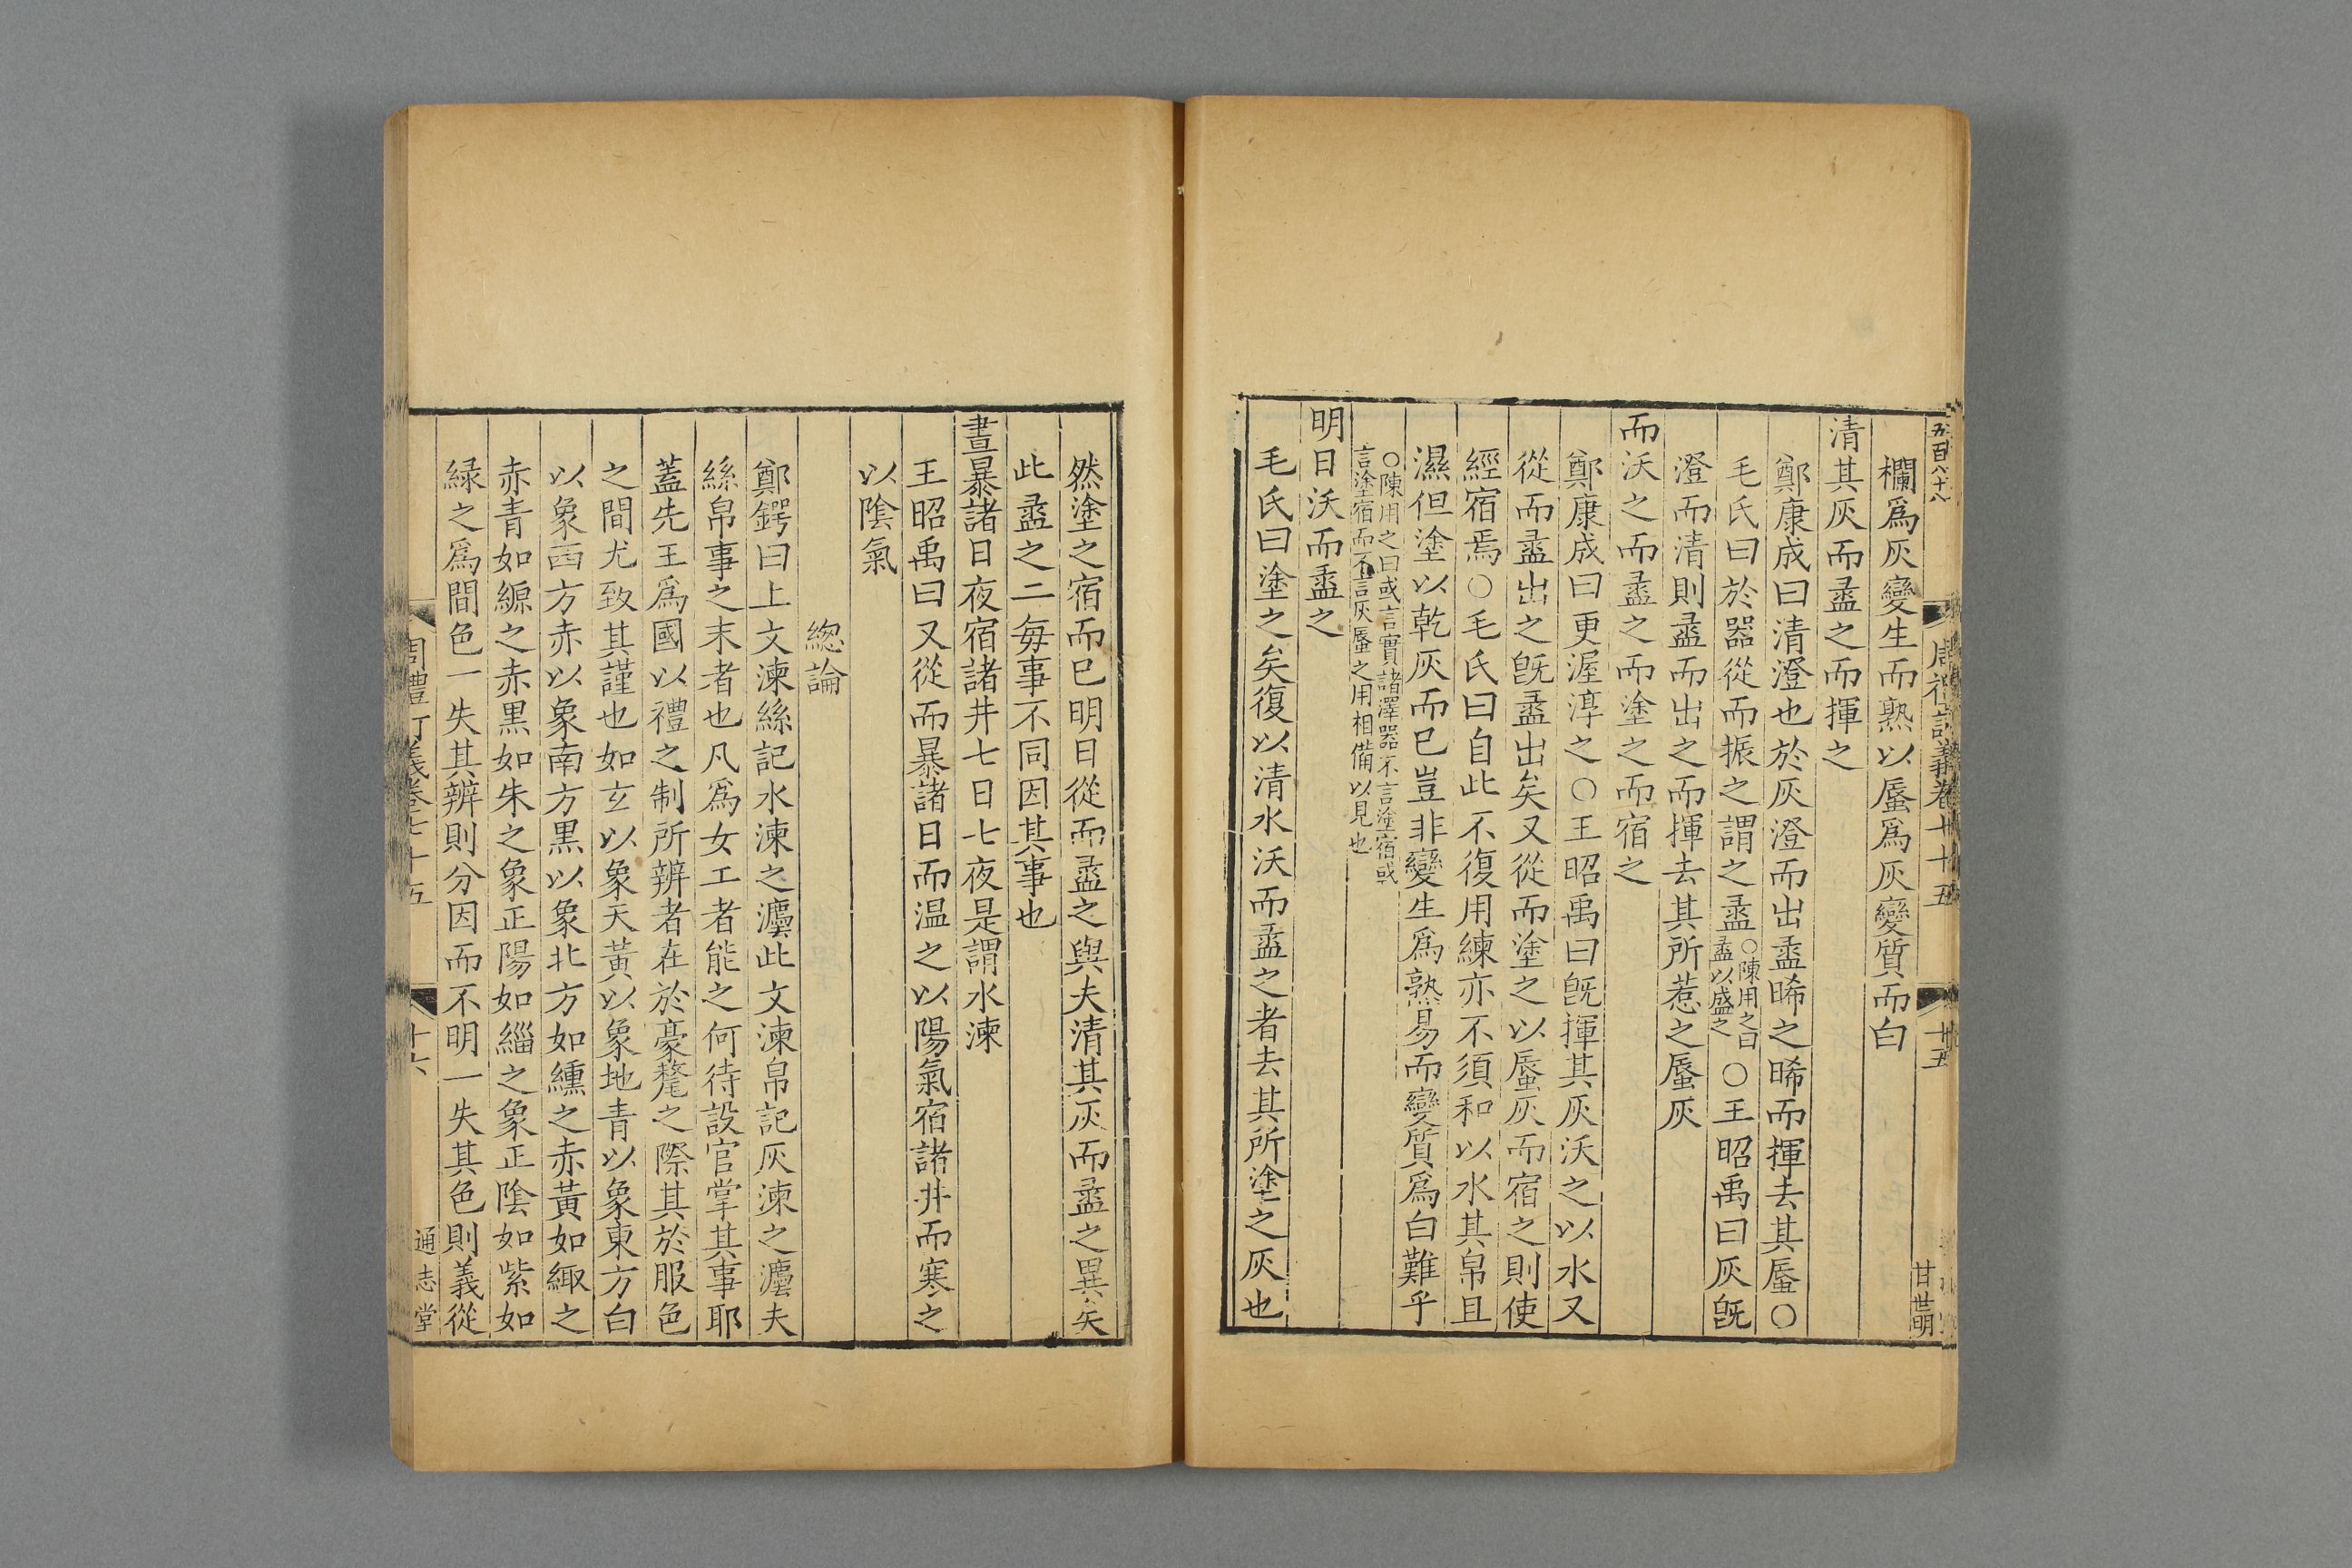 五百八十八
周禮訂義卷七十五
十五
甘世明
欄爲灰變生而熟以蜃爲灰變質而白
清其灰而盝之而揮之
鄭康成曰清澄也於灰澄而出盝晞之晞而揮去其蜃○
毛氏曰於器從而振之謂之盝○陳用之曰盝以盛之○王昭禹曰灰旣
澄而清則盝而出之而揮去其所惹之蜃灰
而沃之而盝之而塗之而宿之
鄭康成曰更渥淳之○王昭禹曰旣揮其灰沃之以水又
從而盝出之旣盝出矣又從而塗之以蜃灰而宿之則使
經宿焉○毛氏曰自此不復用練亦不須和以水其帛且
濕但塗以乾灰而已豈非變生爲熟易而變質爲白難乎
○陳用之曰或言實諸澤器不言塗宿或
言塗宿而不言灰蜃之用相備以見也
明日沃而盝之
毛氏曰塗之矣復以清水沃而盝之者去其所塗之灰也
然塗之宿而已明日從而盝之與夫清其灰而盝之異矣
此盝之二每事不同因其事也
晝暴諸日夜宿諸井七日七夜是謂水湅
王昭禹曰又從而暴諸日而温之以陽氣宿諸井而寒之
以陰氣
緫論
鄭鍔曰上文湅絲記水湅之灋此文湅帛記灰湅之灋夫
絲帛事之末者也凡爲女工者能之何待設官掌其事耶
蓋先王爲國以禮之制所辨者在於豪氂之際其於服色
之間尤致其謹也如玄以象天黃以象地青以象東方白
以象西方赤以象南方黒以象北方如纁之赤黃如緅之
赤青如縓之赤黒如朱之象正陽如緇之象正陰如紫如
緑之爲間色一失其辨則分因而不明一失其色則義從
周禮訂義卷七十五
十六
通志堂